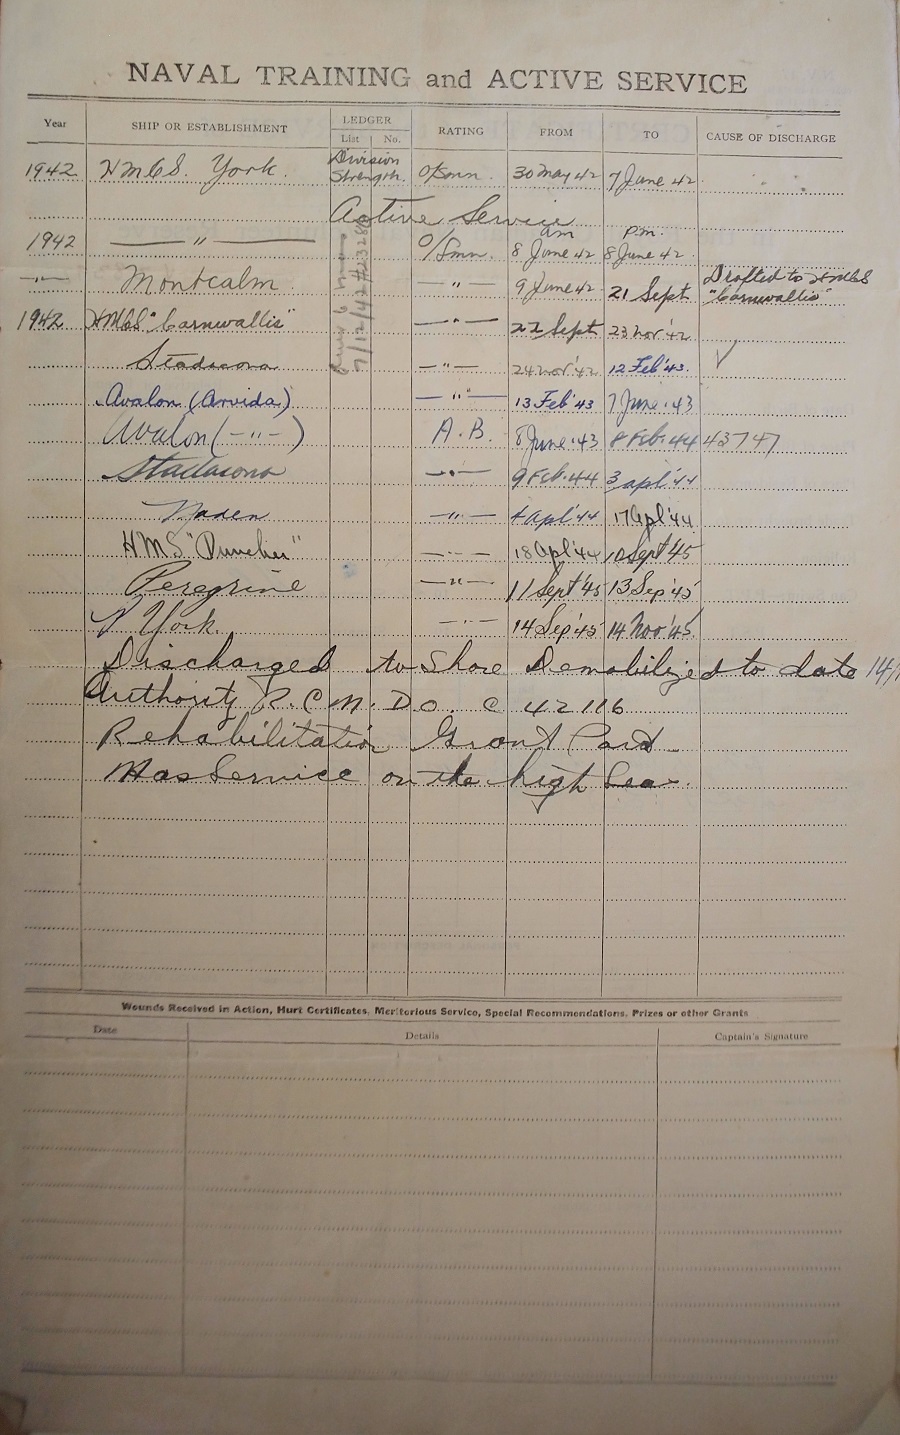 NAVAL TRAINING and ACTIVE SERVICE
Year SHIP OR ESTABLISHMENT LEDGER List No. RATING FROM TO CAUSE OF DISCHARGE
1942 HMCS. York. Division Strength. O/Smn. 30 May 42 7 June 42
Active Service
am p.m.
1942 — " — O/Smn. 8 June 42 8 June 42
— " — Montcalm — " — 9 June 42 21 Sept Drafted to HMCS "Cornwallis"
1942 HMCS "Cornwallis" — " — 22 Sept 23 Nov '42
Stadacona — " — 24 Nov '42 12 Feb '43. ✓
Avalon (Arvida) — " — 13 Feb '43 7 June '43
Avalon (— " —) A.B. 8 June '43 8 Feb. 44 43747
Stadacona — " — 9 Feb. 44 3 Apl '44
Naden — " — 4 Apl '44 17 Apl '44
HMS " — " — 18 Apl '44 10 Sept '45
Peregrine — " — 11 Sept '45 13 Sep '45
York. — " — 14 Sep '45 14 Nov '45.
Discharged to Shore Demobilized to date 14/
Authority R.C.N. D.O. C 42116
Rehabilitation Grant Paid
Has Service on the high Seas.
Wounds Received in Action, Hurt Certificates, Meritorious Service, Special Recommendations, Prizes or other Grants
Date Details Captain's Signature